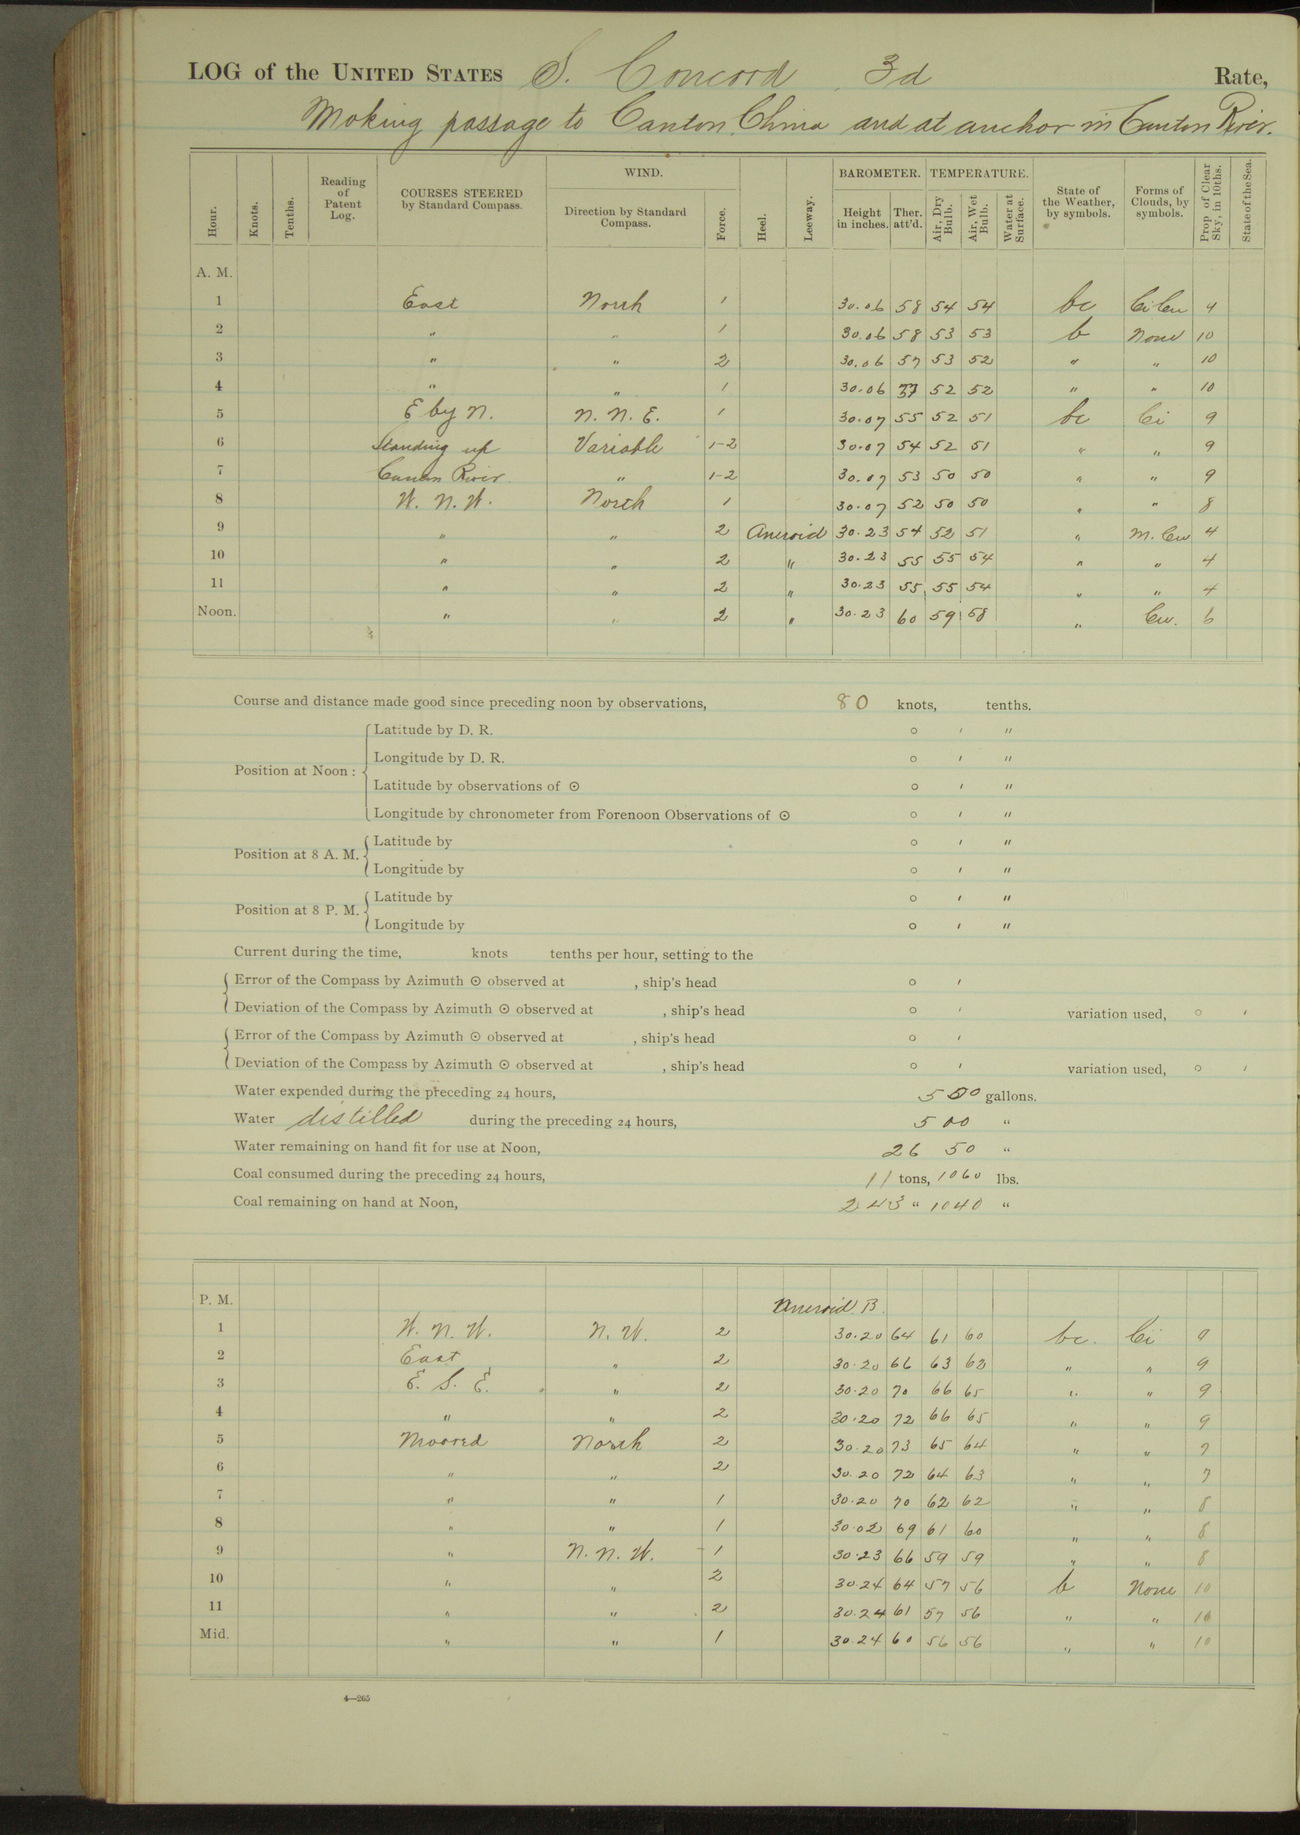 LOG of the UNITED STATES S. Concord 3d Rate,
Making passage to Canton, China and at anchor in Canton River.
Hour. Knots. Tenths. Reading of Patent Log. COURSES STEERED by Standard Compass. WIND. Direction by Standard Compass. Force. Heel. Leeway. BAROMETER. Height in inches. Ther. att'd. TEMPERATURE. Air, Dry Bulb. Air, Wet Bulb. Water at Surface. State of the Weather, by symbols. Forms of Clouds, by symbols. Prop. of Clear Sky, in 10ths. State of the Sea.
A. M.
1 East North 1 30.06 58 54 54 bc Ci Cu 4
2 " " 1 30.06 58 53 53 b None 10
3 " " 2 30.06 57 53 52 " " 10
4 " " 1 30.06 52 52 " " 10
5 E by N. N. N. E. 1 30.07 55 52 51 bc Ci 9
6 Standing up Variable 1-2 30.07 54 52 51 " " 9
7 Canton River " 1-2 30.07 53 50 50 " " 9
8 W. N. W. North 1 30.07 52 50 50 " " 8
9 " " 2 Aneroid 30.23 54 52 51 " M. Cu 4
10 " " 2 " 30.23 55 55 54 " " 4
11 " " 2 " 30.23 55 55 54 " " 4
Noon. " " 2 " 30.23 60 59 58 " Cu. 6
Course and distance made good since preceding noon by observations, 80 knots, tenths.
Position at Noon: Latitude by D. R. ° ' "
Longitude by D. R. ° ' "
Latitude by observations of ☉ ° ' "
Longitude by chronometer from Forenoon Observations of ☉ ° ' "
Position at 8 A. M. Latitude by ° ' "
Longitude by ° ' "
Position at 8 P. M. Latitude by ° ' "
Longitude by ° ' "
Current during the time, knots tenths per hour, setting to the
Error of the Compass by Azimuth ☉ observed at , ship's head ° '
Deviation of the Compass by Azimuth ☉ observed at , ship's head ° ' variation used, ° '
Error of the Compass by Azimuth ☉ observed at , ship's head ° '
Deviation of the Compass by Azimuth ☉ observed at , ship's head ° ' variation used, ° '
Water expended during the preceding 24 hours, 550 gallons.
Water distilled during the preceding 24 hours, 500 "
Water remaining on hand fit for use at Noon, 2650 "
Coal consumed during the preceding 24 hours, 11 tons, 1060 lbs.
Coal remaining on hand at Noon, 243 " 1040 "
P. M. Aneroid B.
1 W. N. W. N. W. 2 30.20 64 61 60 bc. Ci 9
2 East " 2 30.20 66 63 62 " " 9
3 E. S. E. " 2 30.20 70 66 65 " " 9
4 " " 2 30.20 72 66 65 " " 9
5 Moored North 2 30.20 73 65 64 " " 7
6 " " 2 30.20 72 64 63 " " 7
7 " " 1 30.20 70 62 62 " " 8
8 " " 1 30.02 69 61 60 " " 8
9 " N. N. W. 1 30.23 66 59 59 " " 8
10 " " 2 30.24 64 57 56 b None 10
11 " " 2 30.24 61 57 56 " " 10
Mid. " " 1 30.24 60 56 56 " " 10
4—265